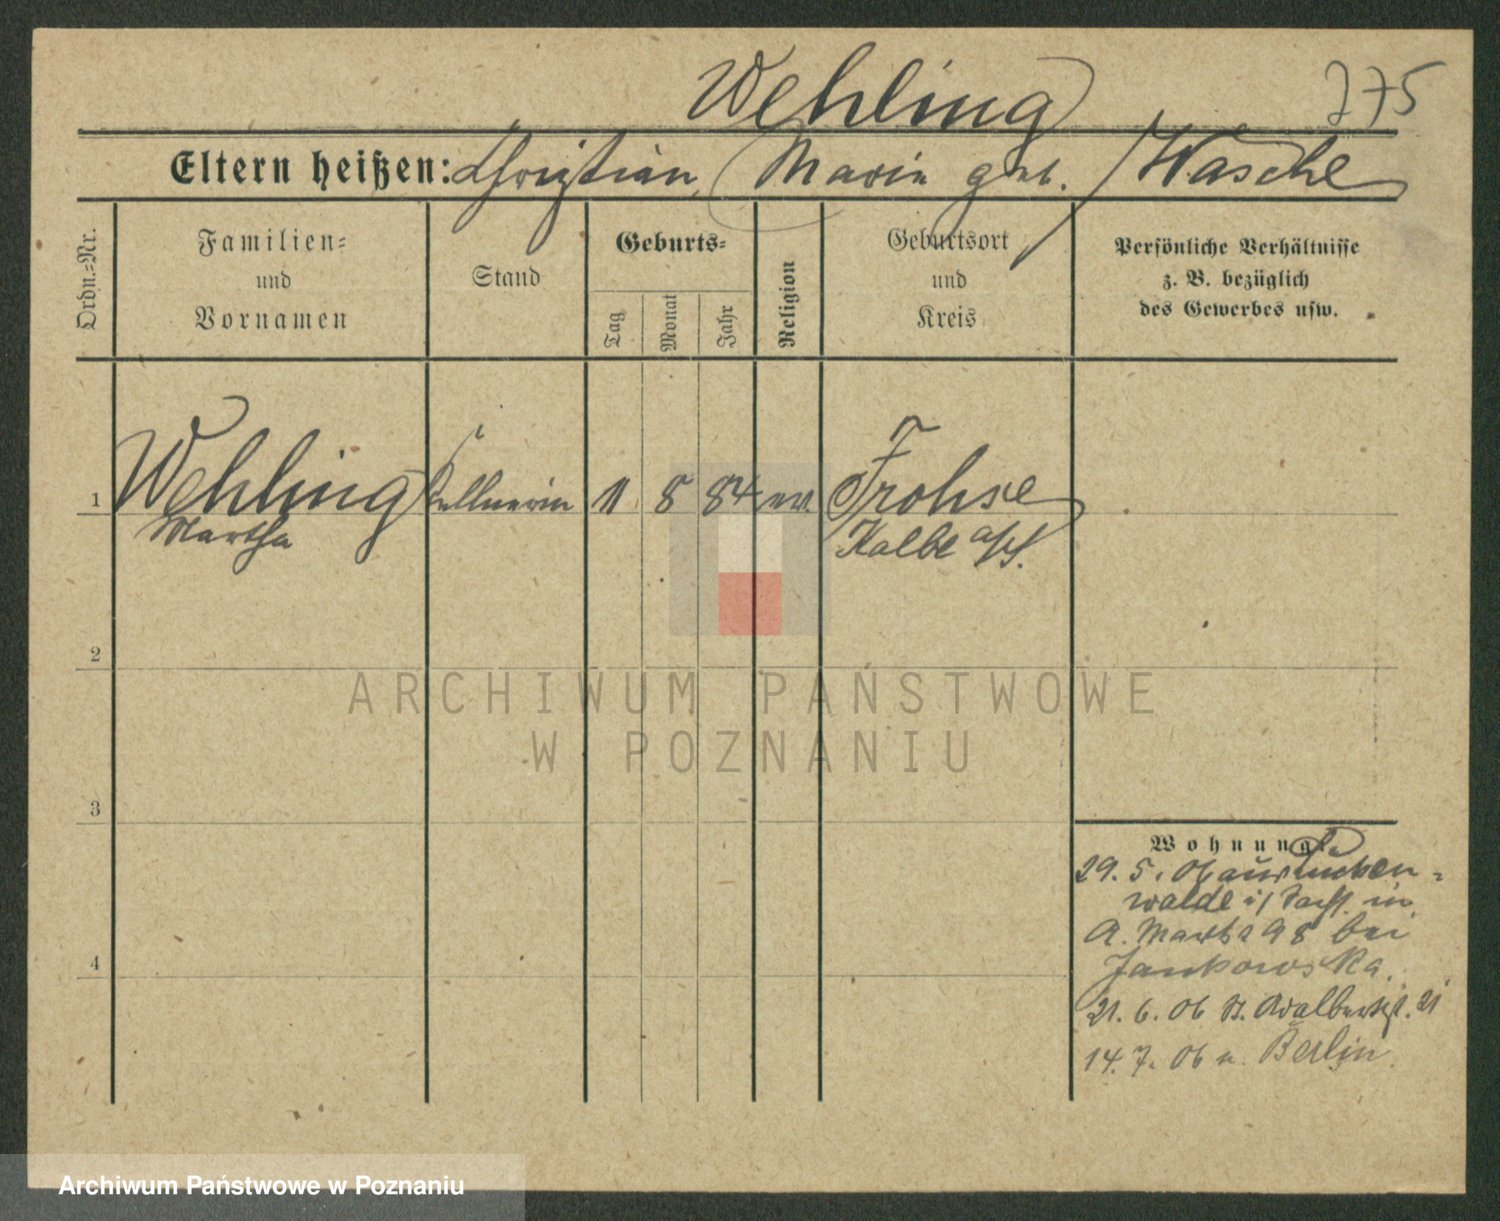 Wehling
275
Eltern heißen: Christian, Marie geb. Wasche
Ordn.=Nr.
Familien=
und
Vornamen
Stand
Geburts=
Tag
Monat
Jahr
Religion
Geburtsort
und
Kreis
Persönliche Verhältnisse
z. B. bezüglich
des Gewerbes usw.
1
Wehling
Martha
Kellnerin
11
8
84
ev.
Frohse
Kalbe a/S.
2
3
4
Wohnung.
29. 5. 06 aus Lucken-
walde i/ in
A. Markt 98 bei
Jankowska.
21. 6. 06 St. Adalbertstr. 21
14. 7. 06 n. Berlin
ARCHIWUM PAŃSTWOWE
W POZNANIU
Archiwum Państwowe w Poznaniu